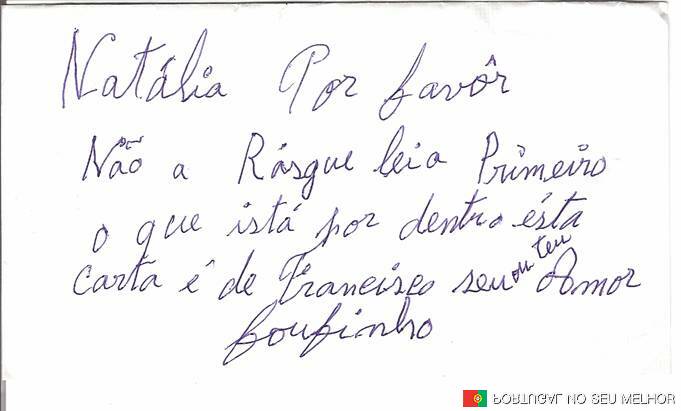 Natália Por favôr
Não a Rásgue leia Primeiro
o que istá por dentro ésta
carta é de Francisco seu ou teu Amor
foufinho
PORTUGAL NO SEU MELHOR